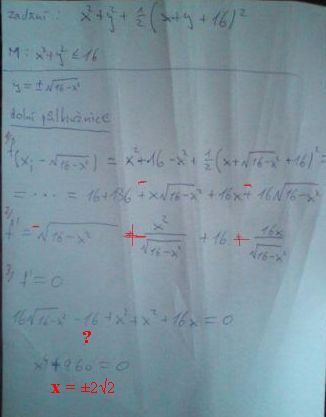 zadání: x²+y²+½(x+y+16)²
M: x²+y² ≤ 16
y = ±√16-x²
dolní půlkružnice
1/ f(x, -√16-x²) = x²+16-x²+½(x+√16-x²+16)² =
= ... = 16+136 - x√16-x² + 16x - 16√16-x²
2/ f' = -√16-x² + x²/√16-x² + 16 + 16x/√16-x²
3/ f' = 0
16√16-x² - 16 + x² + x² + 16x = 0
?
= 0
x = ±2√2